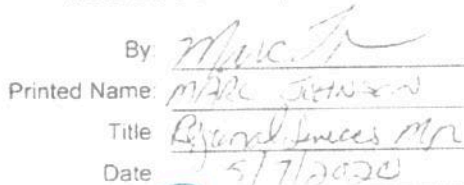 By: Marc J
Printed Name: MARC JOHNSON
Title Regional Services Mgr
Date 5/7/2020